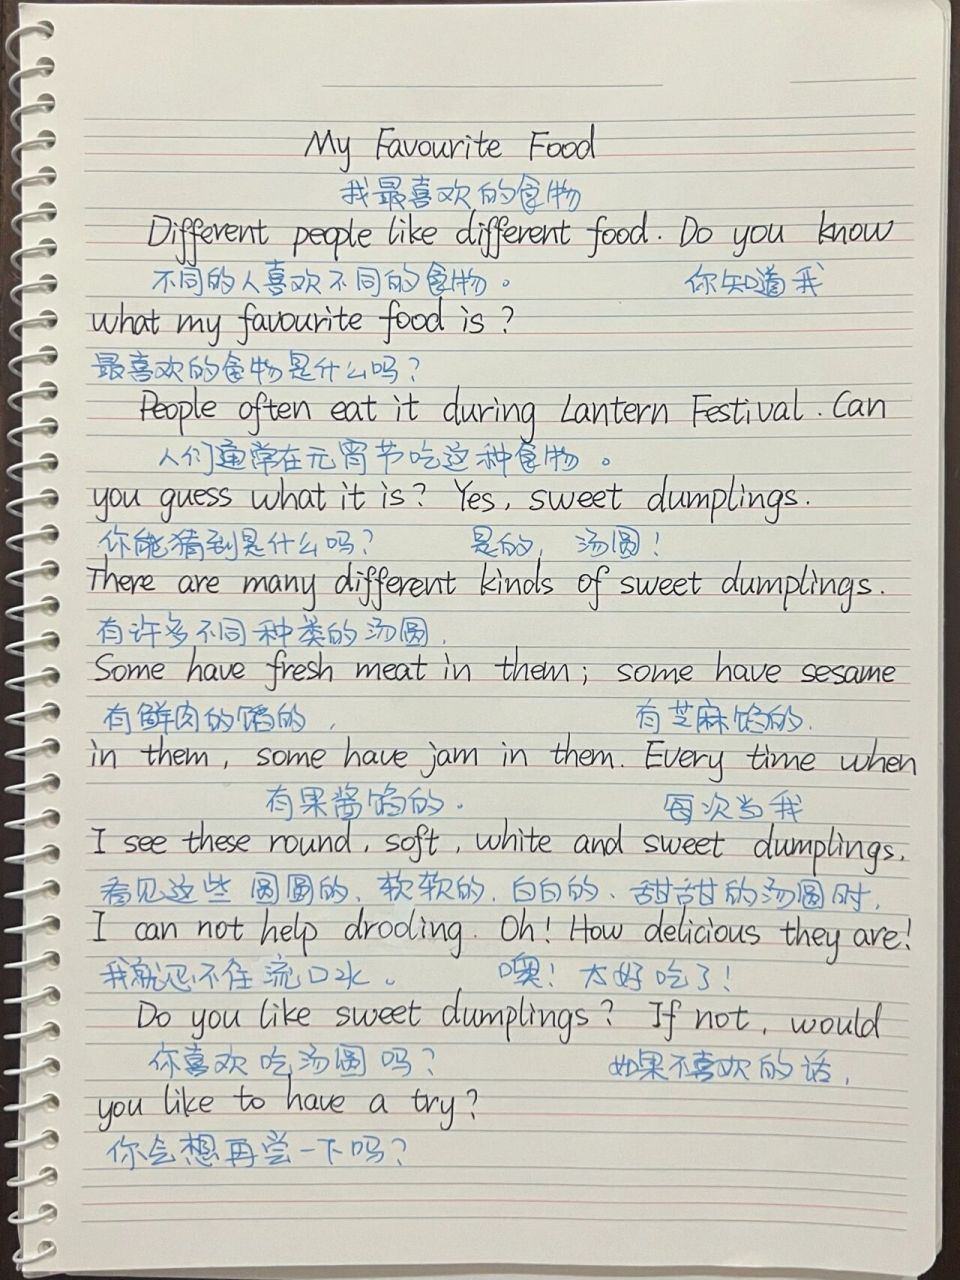 My Favourite Food
我最喜欢的食物
Different people like different food. Do you know
不同的人喜欢不同的食物。 你知道我
what my favourite food is?
最喜欢的食物是什么吗？
People often eat it during Lantern Festival. Can
人们通常在元宵节吃这种食物。
you guess what it is? Yes, sweet dumplings.
你能猜到是什么吗？ 是的，汤圆！
There are many different kinds of sweet dumplings.
有许多不同种类的汤圆，
Some have fresh meat in them; some have sesame
有鲜肉的馅的， 有芝麻馅的，
in them, some have jam in them. Every time when
有果酱馅的. 每次当我
I see these round, soft, white and sweet dumplings,
看见这些圆圆的、软软的、白白的、甜甜的汤圆时，
I can not help drooling. Oh! How delicious they are!
我就忍不住流口水。 噢！太好吃了！
Do you like sweet dumplings? If not, would
你喜欢吃汤圆吗？ 如果不喜欢的话，
you like to have a try?
你会想再尝一下吗？